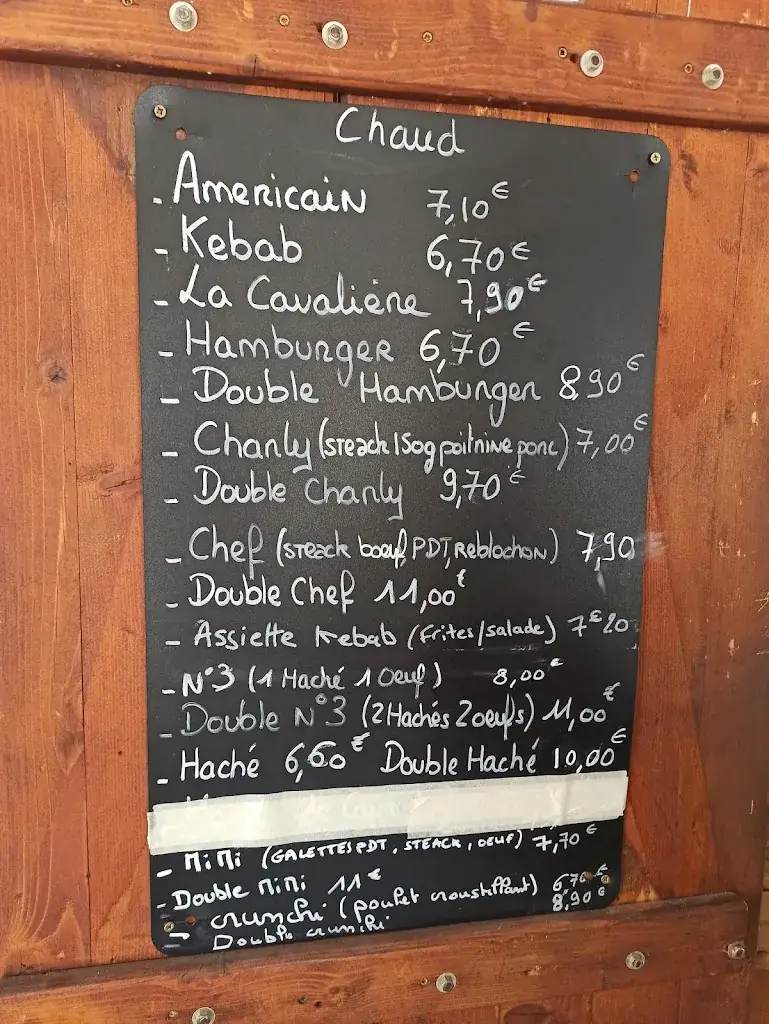 Chaud
- Americain 7,10€
- Kebab 6,70€
- La Cavalière 7,90€
- Hamburger 6,70€
- Double Hamburger 8,90€
- Charly (steack 150g poitrine porc) 7,00€
- Double Charly 9,70€
- Chef (steack boeuf, PDT, Reblochon) 7,90
- Double Chef 11,00€
- Assiette Kebab (frites/salade) 7€20
- N°3 (1 Haché 1 Oeuf) 8,00€
- Double N°3 (2 Hachés 2 oeufs) 11,00€
- Haché 6,60€ Double Haché 10,00€
- MiMi (GALETTES PDT, STEACK, OEUF) 7,70€
- Double MiMi 11€
- crunchi (poulet croustillant) 6,70€
Double crunchi 8,90€